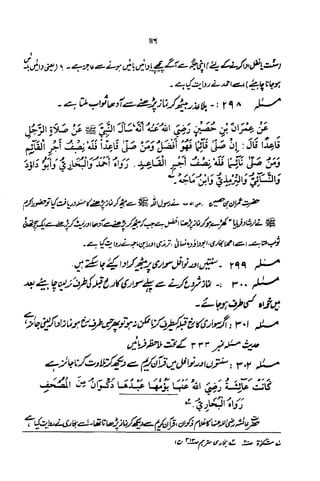 ۱۱۶
(سنت یا نفل ادا کرنے کے لئے) اپنی جگہ سے آگے پیچھے یا دائیں بائیں ہونے سے عاجز ہے۔ (یعنی دائیں بائیں
ہو جانا چاہئے) اسے احمد نے روایت کیا ہے۔
مسئلہ ۲۹۸:- بلا عذر بیٹھ کر نماز پڑھنے سے آدھا ثواب ملتا ہے۔
عَنْ عِمْرَانَ بْنِ حُصَيْنٍ رَضِيَ اللهُ عَنْهُ أَنَّهُ سَأَلَ النَّبِيَّ ﷺ عَنْ صَلَاةِ الرَّجُلِ
قَاعِدًا قَالَ: إِنْ صَلَّى قَائِمًا فَهُوَ أَفْضَلُ وَمَنْ صَلَّى قَاعِدًا فَلَهُ نِصْفُ أَجْرِ الْقَائِمِ
وَمَنْ صَلَّى نَائِمًا فَلَهُ نِصْفُ أَجْرِ الْقَاعِدِ. رَوَاهُ أَحْمَدُ وَالْبُخَارِيُّ وَأَبُو دَاوُدَ
وَالنَّسَائِيُّ وَالتِّرْمِذِيُّ وَابْنُ مَاجَةَ
حضرت عمران بن حصین نے رسول اللہ ﷺ سے بیٹھ کر نماز پڑھنے کا مسئلہ دریافت کیا تو حضور اکرم
ﷺ نے ارشاد فرمایا کھڑے ہو کر نماز پڑھنا افضل ہے جب کہ بیٹھ کر پڑھنے سے آدھا اور لیٹ کر پڑھنے سے
ثواب ملتا ہے۔ اسے احمد، بخاری، ابوداؤد، نسائی، ترمذی اور ابن ماجہ نے روایت کیا ہے۔
مسئلہ ۲۹۹- سنتیں اور نوافل سواری پر بیٹھ کر ادا کئے جا سکتے ہیں۔
مسئلہ ۳۰۰:- نماز شروع کرنے سے پہلے سواری کا رخ قبلہ کی طرف کر لینا چاہئے بعد
میں خواہ کسی طرف ہو جائے۔
مسئلہ ۳۰۱:- اگر سواری کا رخ قبلہ کی طرف کرنا ممکن نہ ہو تو جس طرف رخ ہو نماز ادا کر لینی جائز ہے
حدیث مسئلہ نمبر ۳۳۳ کے تحت ملاحظہ فرمائیں
مسئلہ ۳۰۲:- سنتوں اور نوافل میں قرآن کریم سے دیکھ کر تلاوت کرنا جائز ہے
كَانَتْ عَائِشَةُ رَضِيَ اللهُ عَنْهَا يَؤُمُّهَا عَبْدُهَا ذَكْوَانُ مِنَ الْمُصْحَفِ
رَوَاهُ الْبُخَارِيُّ
حضرت عائشہ رضی اللہ عنہا کا غلام ذکوان قرآن کریم سے دیکھ کر نماز پڑھاتا تھا۔ اسے بخاری نے روایت کیا ہے